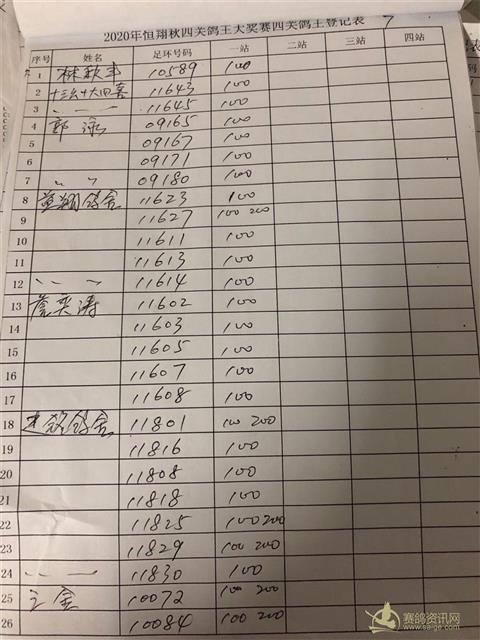 2020年恒翔秋四关鸽王大奖赛四关鸽王登记表 7
序号 姓名 足环号码 一站 二站 三站 四站
1 林秋丰 10589 100
2 11643 100
3 〃 — 11645 100
4 郭泳 09165 100
5 09167 100
6 09171 100
7 〃 〃 09180 100
8 翔鸽舍 11623 100
9 11627 100 200
10 11611 100
11 11613 100
12 〃 — 11614 100
13 奕涛 11602 100
14 11603 100
15 11605 100
16 11607 100
17 11608 100
18 鸽舍 11801 100 200
19 11816 100
20 11808 100
21 11818 100
22 11825 100 200
23 11829 100 200
24 〃 — 11830 100
25 王金 10072 100 200
26 10084 100 200
赛鸽资讯网
www.saige.com